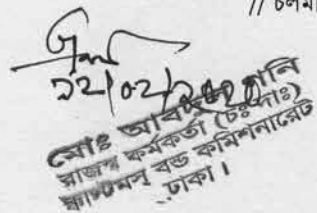 // চলমা
১২/০২/২০২০
মোঃ আবদুল গনি
রাজস্ব কর্মকর্তা (চঃ দাঃ)
কাস্টমস্ বন্ড কমিশনারেট
ঢাকা।